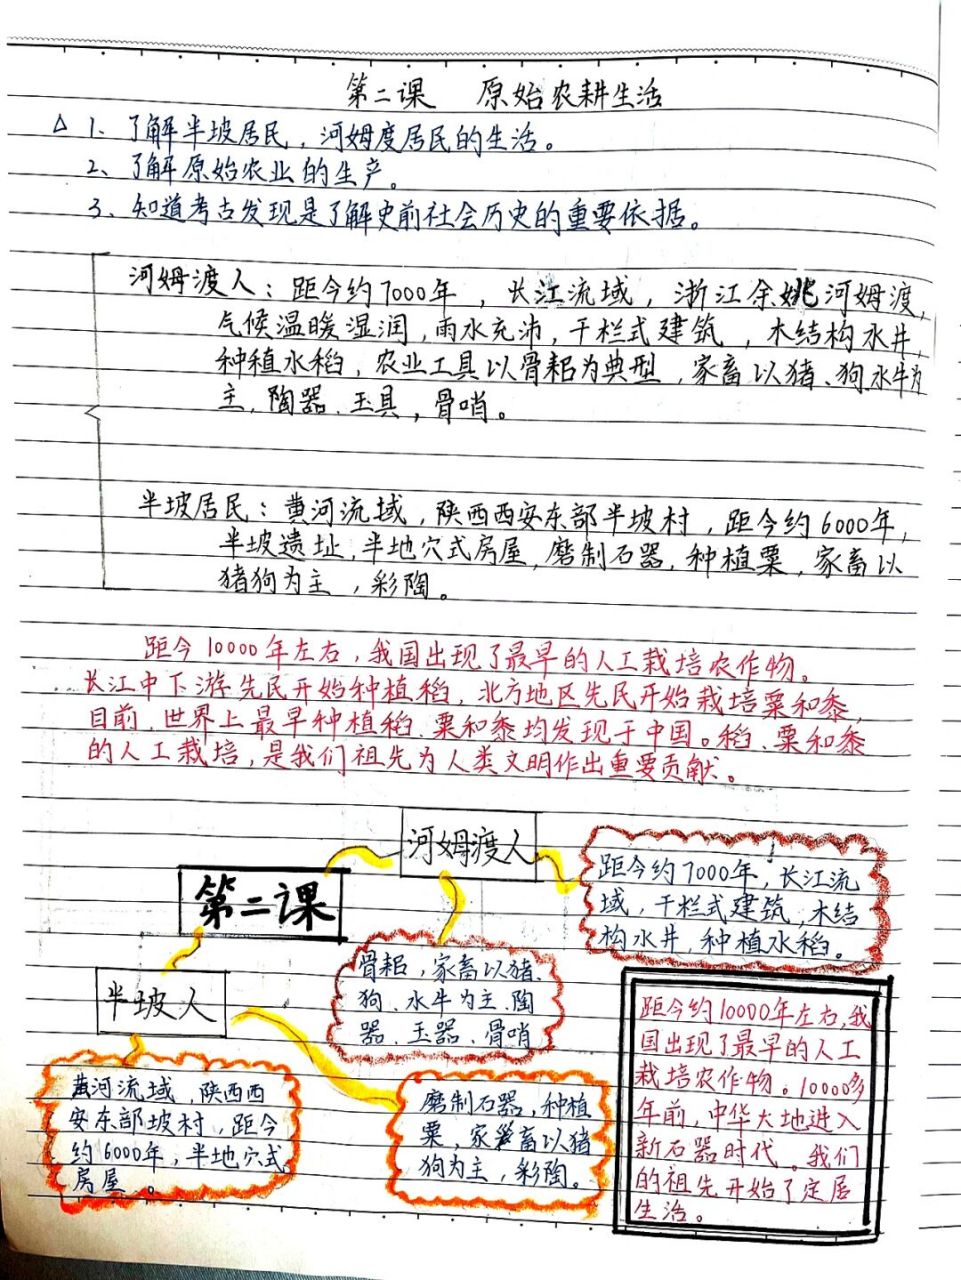 第二课 原始农耕生活
△ 1、了解半坡居民，河姆度居民的生活。
2、了解原始农业的生产。
3、知道考古发现是了解史前社会历史的重要依据。
河姆渡人：距今约7000年，长江流域，浙江余姚河姆渡，
气候温暖湿润，雨水充沛，干栏式建筑，木结构水井，
种植水稻，农业工具以骨耜为典型，家畜以猪、狗、水牛为
主，陶器、玉具，骨哨。
半坡居民：黄河流域，陕西西安东部半坡村，距今约6000年，
半坡遗址，半地穴式房屋，磨制石器，种植粟，家畜以
猪狗为主，彩陶。
距今10000年左右，我国出现了最早的人工栽培农作物。
长江中下游先民开始种植稻，北方地区先民开始栽培粟和黍，
目前，世界上最早种植稻、粟和黍均发现于中国。稻、粟和黍
的人工栽培，是我们祖先为人类文明作出重要贡献。
第二课
河姆渡人
距今约7000年，长江流
域，干栏式建筑，木结
构水井，种植水稻。
骨耜，家畜以猪、
狗、水牛为主、陶
器、玉器、骨哨
半坡人
黄河流域，陕西西
安东部坡村，距今
约6000年，半地穴式
房屋。
磨制石器，种植
粟，家畜以猪
狗为主，彩陶。
距今约10000年左右，我
国出现了最早的人工
栽培农作物。10000多
年前，中华大地进入
新石器时代。我们
的祖先开始了定居
生活。